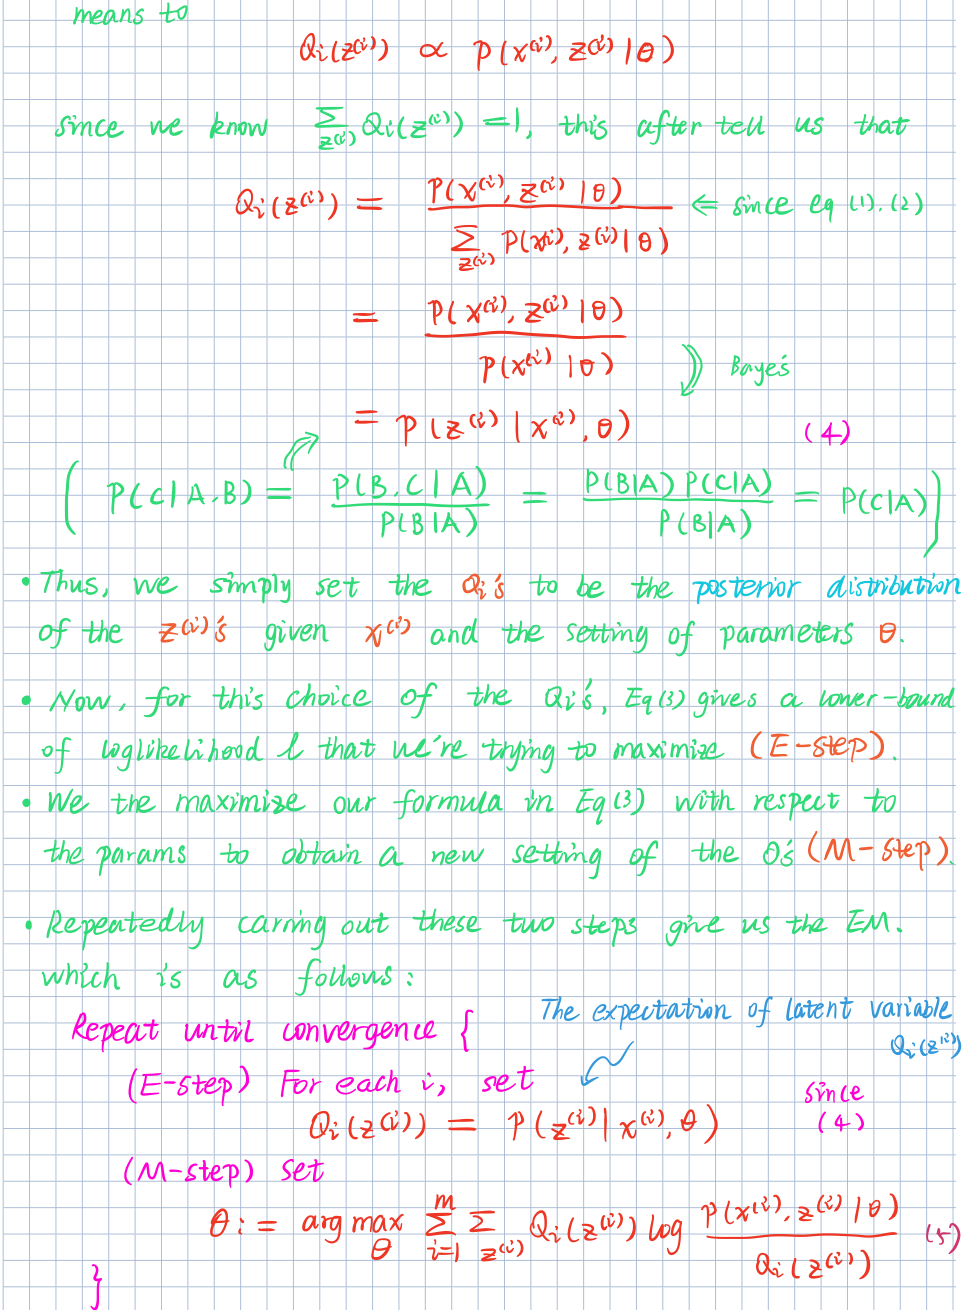 means to
Qi(z⁽ⁱ⁾) ∝ P(x⁽ⁱ⁾, z⁽ⁱ⁾ | θ)
since we know ∑_{z⁽ⁱ⁾} Qi(z⁽ⁱ⁾) = 1, this after tell us that
Qi(z⁽ⁱ⁾) = P(x⁽ⁱ⁾, z⁽ⁱ⁾ | θ) / ∑_{z⁽ⁱ⁾} P(x⁽ⁱ⁾, z⁽ⁱ⁾ | θ) ⇐ since eq (1).(2)
= P(x⁽ⁱ⁾, z⁽ⁱ⁾ | θ) / P(x⁽ⁱ⁾ | θ) Baye's
= P(z⁽ⁱ⁾ | x⁽ⁱ⁾, θ) (4)
( P(C|A.B) = P(B.C|A) / P(B|A) = P(B|A) P(C|A) / P(B|A) = P(C|A) )
• Thus, we simply set the Qi's to be the posterior distribution
of the z⁽ⁱ⁾'s given x⁽ⁱ⁾ and the setting of parameters θ.
• Now, for this choice of the Qi's, Eq(3) gives a lower-bound
of loglikelihood l that we're trying to maximize (E-step).
• We the maximize our formula in Eq(3) with respect to
the params to obtain a new setting of the θs (M-step).
• Repeatedly carring out these two steps give us the EM.
which is as follows:
The expectation of latent variable
Qi(z⁽ⁱ⁾)
Repeat until convergence {
(E-step) For each i, set
Qi(z⁽ⁱ⁾) = P(z⁽ⁱ⁾ | x⁽ⁱ⁾, θ) since (4)
(M-step) set
θ := arg max_θ ∑_{i=1}^{m} ∑_{z⁽ⁱ⁾} Qi(z⁽ⁱ⁾) log P(x⁽ⁱ⁾, z⁽ⁱ⁾ | θ) / Qi(z⁽ⁱ⁾) (5)
}